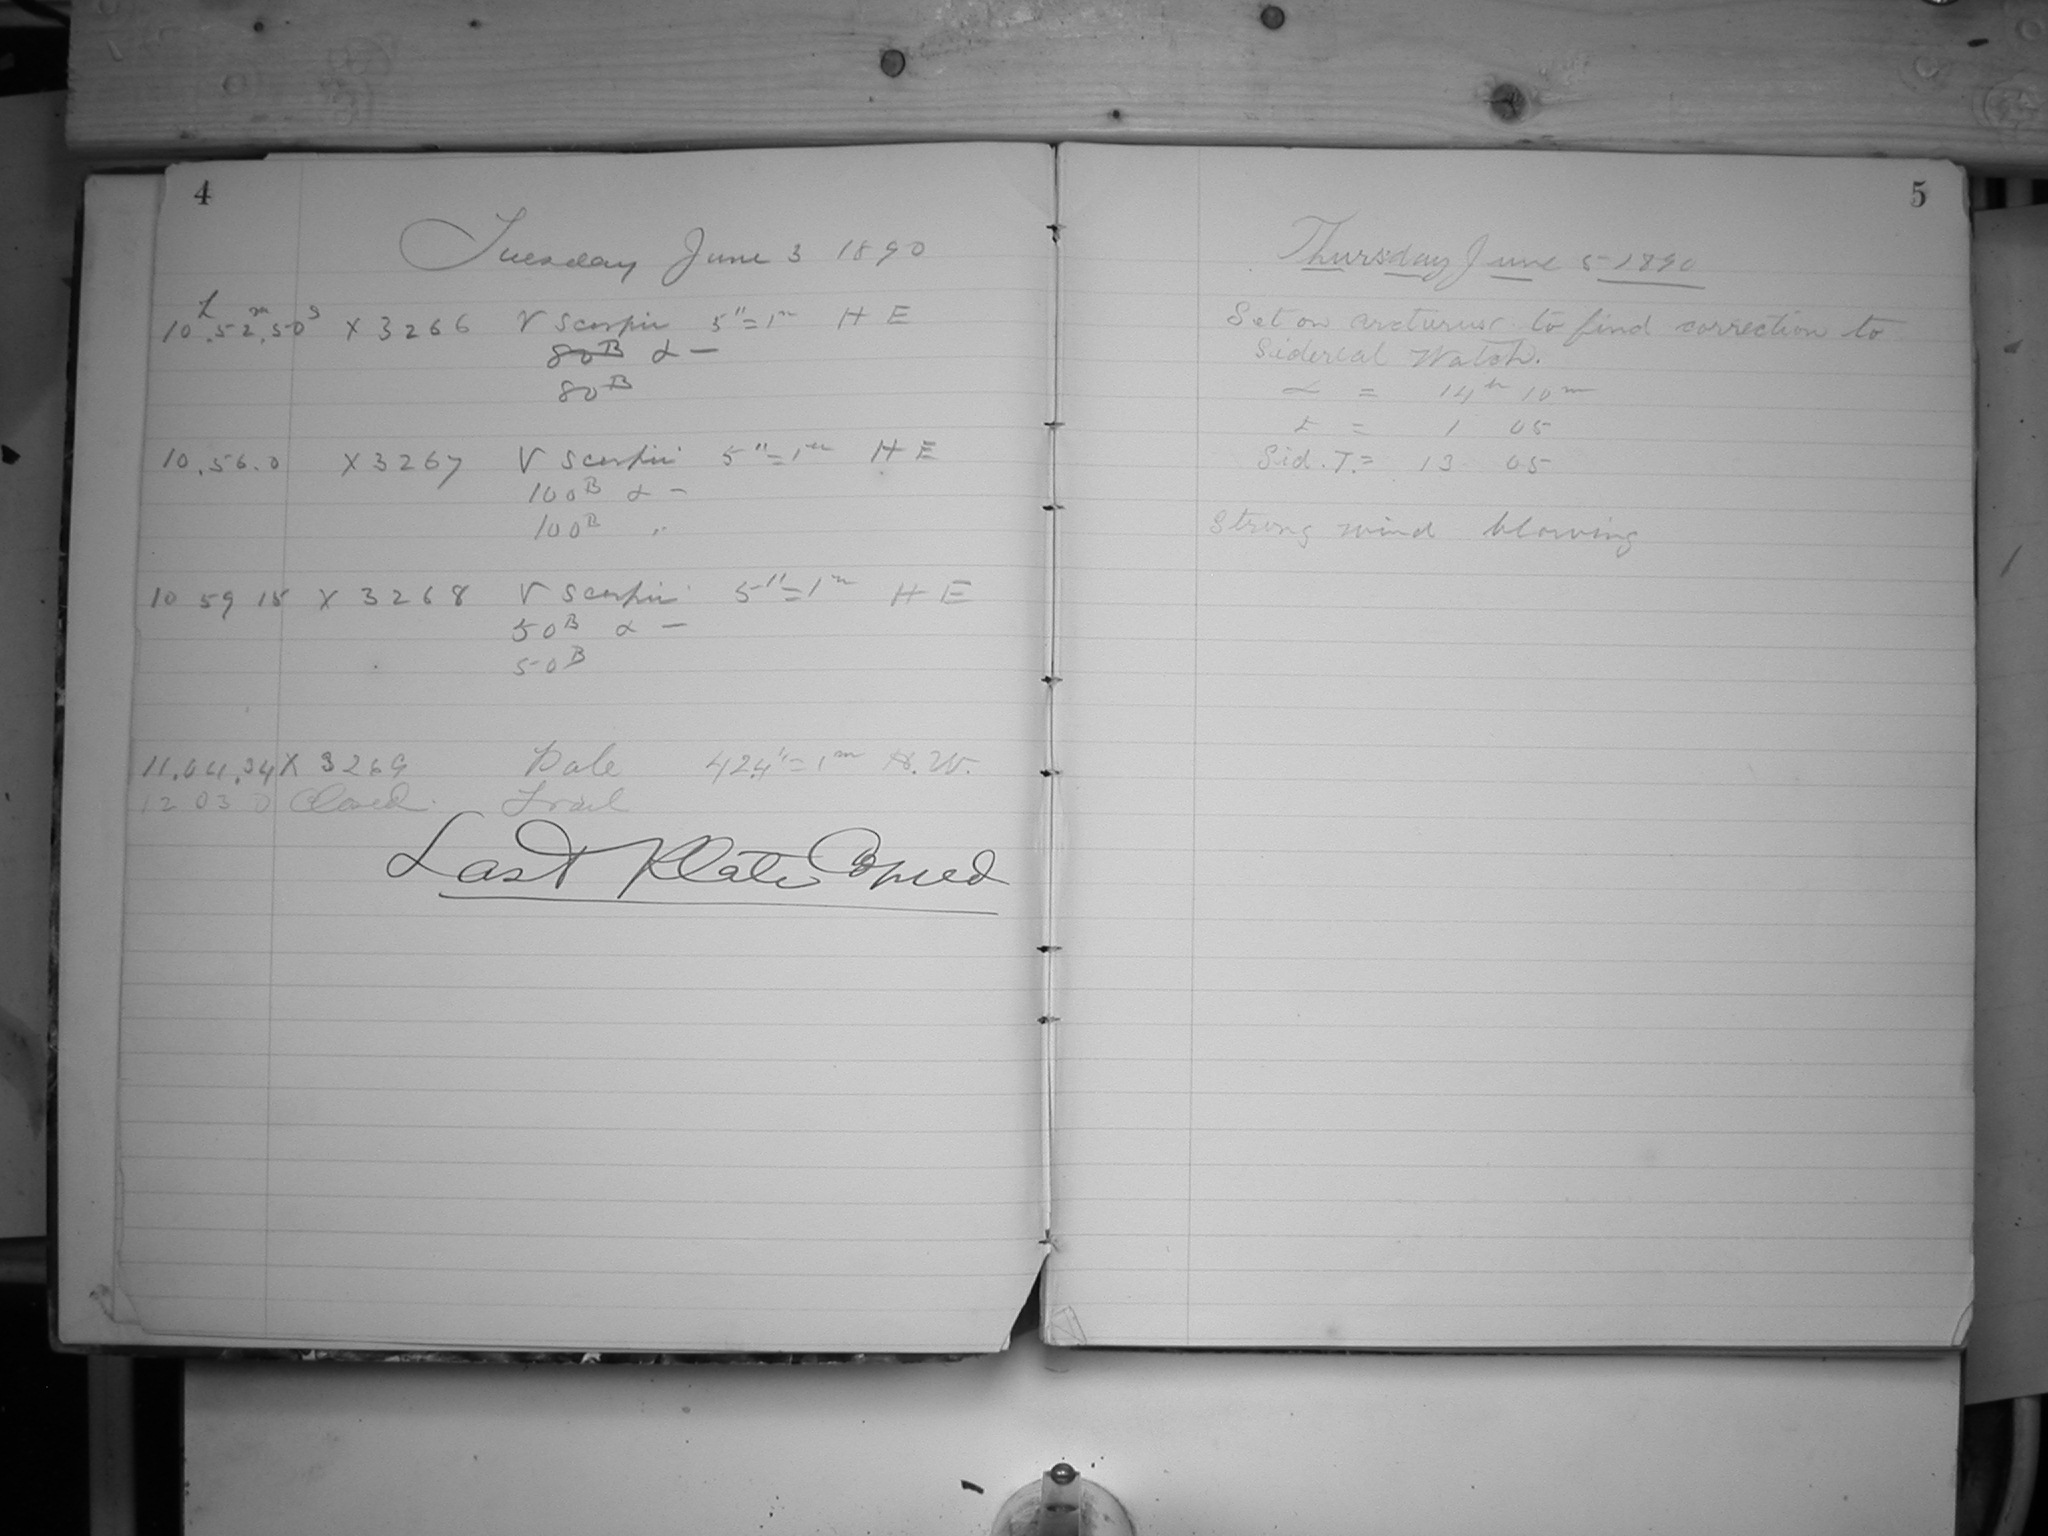 4
Tuesday June 3 1890
10.52.50 h m s X 3266 V Scorpii 5"=1m H E
80B α —
80B
10.56.0 X 3267 V Scorpii 5"=1m H E
100B α -
100B "
10 59 15 X 3268 V Scorpii 5"=1m H E
50B α —
50B
X 3269 Pole 424"=1m H.W.
12 03 0 Closed. Trail
Last Plate Copied
5
Thursday June 5 1890
Set on arcturus to find correction to
Sidereal Watch.
α = 14h 10m
t = 1 05
Sid. T. = 13 05
Strong wind blowing